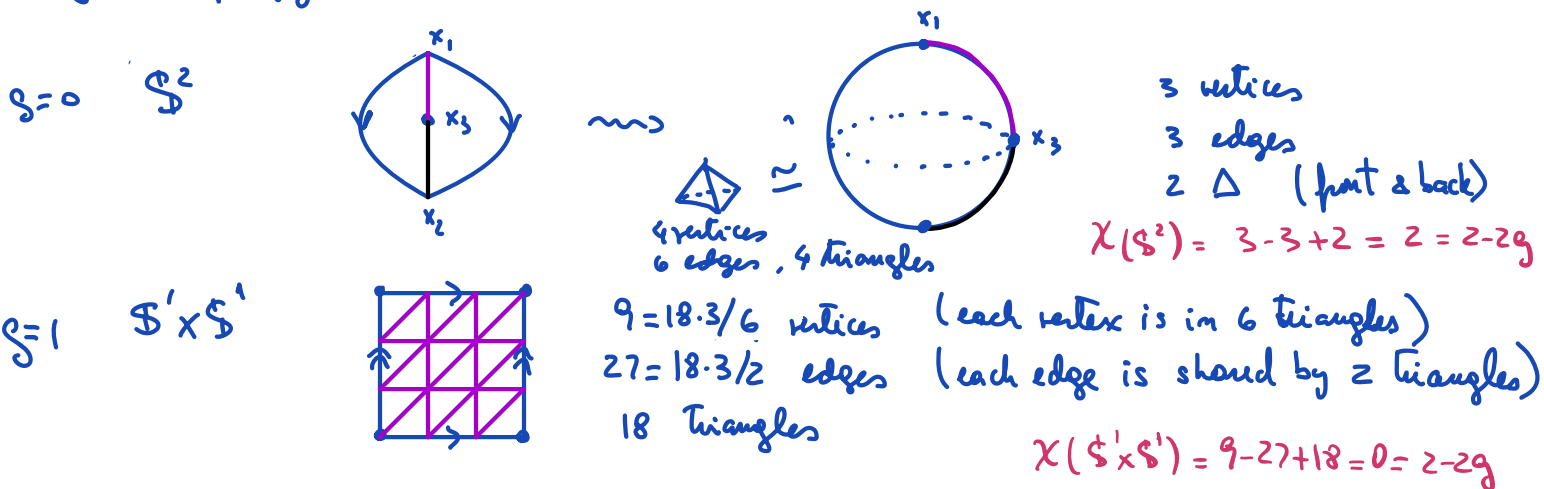 g=0 $² x₁ x₃ x₂ ⇝ x₁ x₃
≃
4 vertices
6 edges, 4 triangles
3 vertices
3 edges
2 Δ (front & back)
χ($²) = 3-3+2 = 2 = 2-2g
g=1 $¹x$¹
9=18·3/6 vertices (each vertex is in 6 triangles)
27=18·3/2 edges (each edge is shared by 2 triangles)
18 triangles
χ($¹x$¹) = 9-27+18=0=2-2g